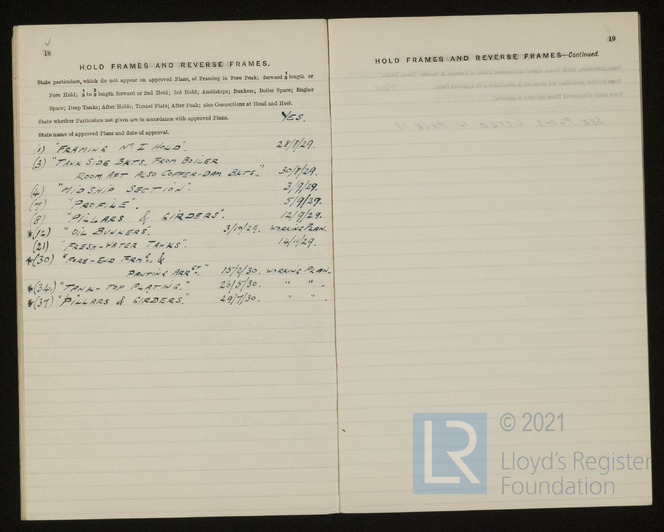 18
HOLD FRAMES AND REVERSE FRAMES.
State particulars, which do not appear on approved Plans, of Framing in Fore Peak; forward 1/5 length or
Fore Hold; 1/5 to 2/5 length forward or 2nd Hold; 3rd Hold; Amidships; Bunkers; Boiler Space; Engine
Space; Deep Tanks; After Holds; Tunnel Flats; After Peak; also Connections at Head and Heel.
State whether Particulars not given are in accordance with approved Plans. YES.
State name of approved Plans and date of approval.
(1) "FRAMING No I HOLD". 28/8/29.
(3) "TANK SIDE BKTS. FROM BOILER
ROOM AFT ALSO COFFER-DAM BKTS." 30/8/29.
(4) "MIDSHIP SECTION". 3/9/29.
(7) "PROFILE". 5/9/29.
(8) "PILLARS & GIRDERS". 12/9/29.
*(12) "OIL BUNKERS. 3/10/29. WORKING PLAN.
(21) "FRESH-WATER TANKS". 14/4/29.
*(30) "FORE-END FRMG. &
PANTING ARRGT." 15/2/30. WORKING PLAN.
*(34) "TANK-TOP PLATING." 26/5/30. " " .
*(37) "PILLARS & GIRDERS." 29/7/30. " " .
19
HOLD FRAMES AND REVERSE FRAMES—Continued.
LR
© 2021
Lloyd's Register
Foundation